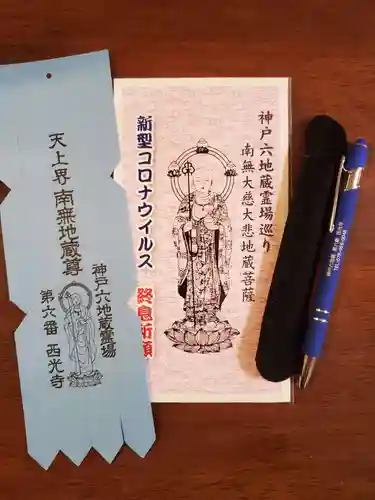 天上界 南無地蔵尊
神戸六地蔵霊場
第六番 西光寺
神戸六地蔵霊場巡り
南無大慈大悲地蔵菩薩
新型コロナウイルス 終息祈願